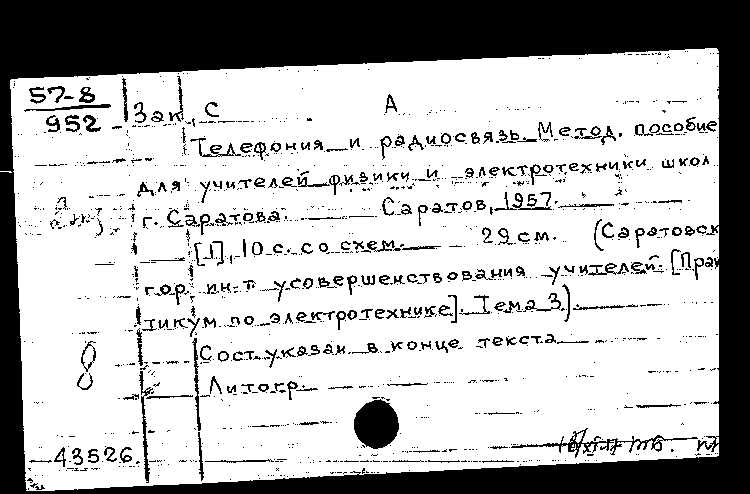 57-8
952
Зак. С А
Телефония и радиосвязь. Метод. пособие
для учителей физики и электротехники школ
г. Саратова. Саратов, 1957.
[1], 10 с. со схем. 29 см. (Саратовск
гор. ин-т усовершенствования учителей. [Прак
тикум по электротехнике]. Тема 3).
Сост. указан в конце текста
Литогр.
8
43526.